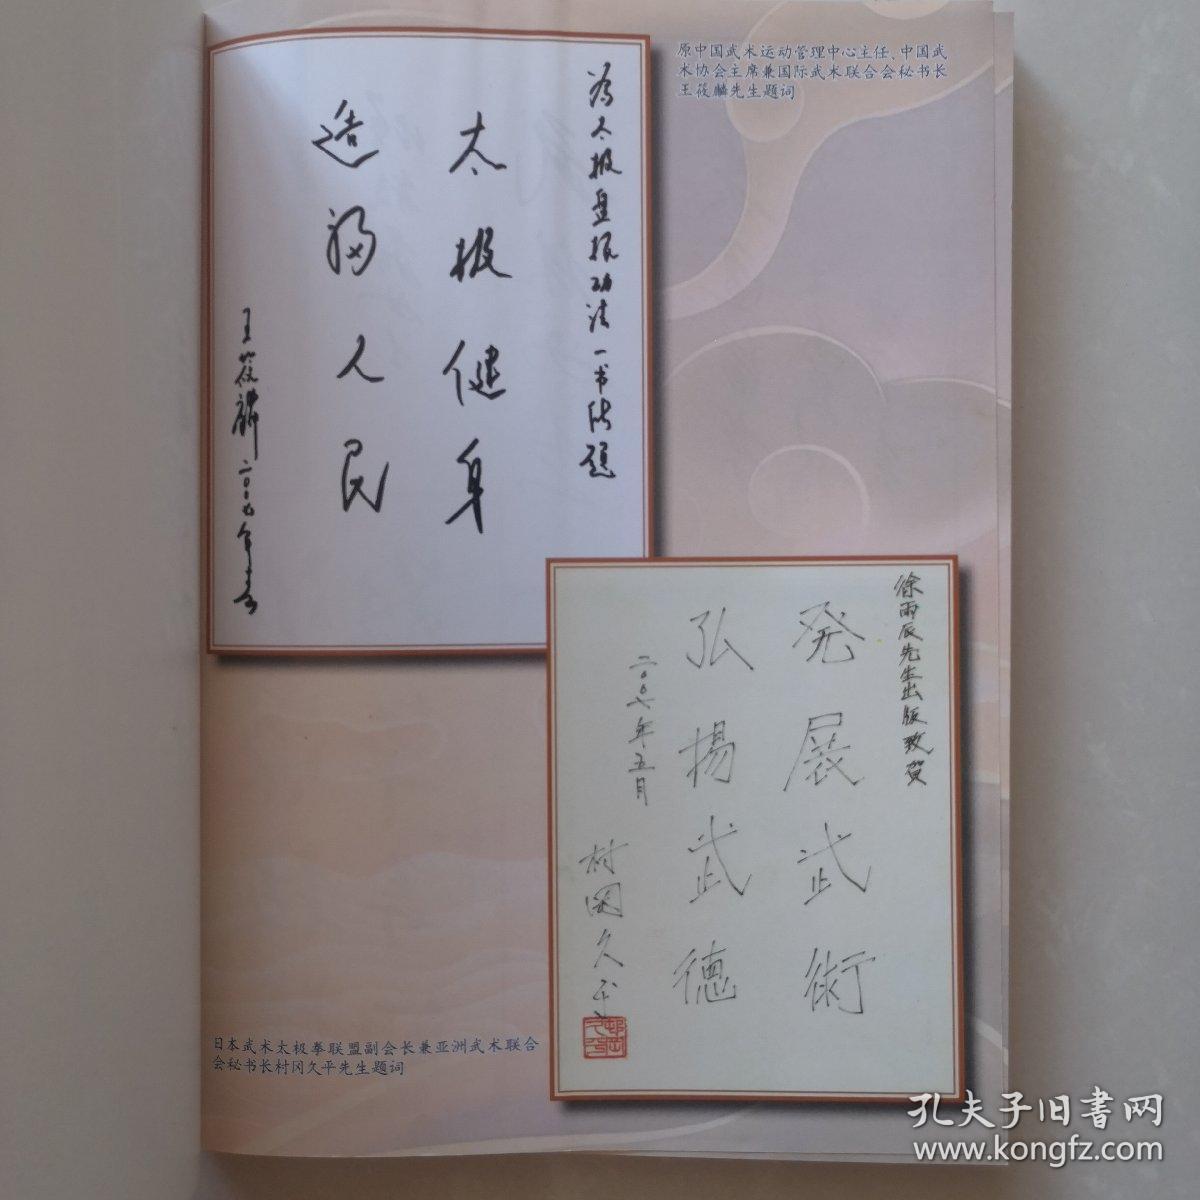 原中国武术运动管理中心主任、中国武
术协会主席兼国际武术联合会秘书长
王筱麟先生题词
为太极盘根功法一书法题
太极健身
造福人民
王筱麟 二〇〇九年春
徐雨辰先生出版致贺
発展武術
弘揚武德
二〇〇七年五月
村岡久平
日本武术太极拳联盟副会长兼亚洲武术联合
会秘书长村冈久平先生题词
孔夫子旧書网
www.kongfz.com